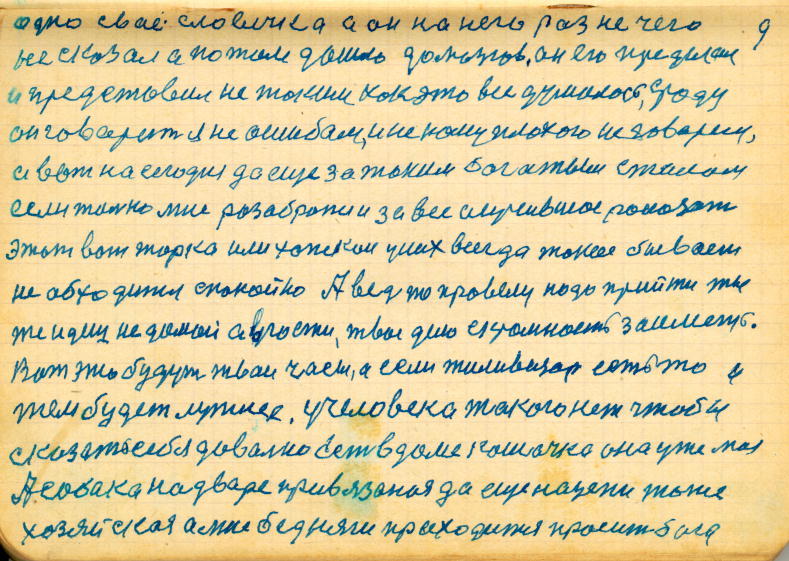 одно своё словечка а он на него раз не чего 9
не сказал а потом дошло домозгов, он его
и представил не таким как это все думалось, сроду
он говарит я не ошибаюсь, и не кому плохого не говарем,
а вот на сегодня да еще за таким богатым сталом
если только мне разабрать и за все случившое
этот вот или у них всегда такое бывает
не обходится спокойно А ведь по правелу надо прийти ты
же идеш не домой а вгости, твое дело скромность заиметь.
Вот это будут твои часы, а если тиливизор есть то и
тем будет лутшее, учеловека такого нет чтобы
сказать себя довално есть вдоме кошочка она уже моя
А собака на дваре привязаная да еще нацепи тоже
хозяйская а мне бедняги приходится просить бога